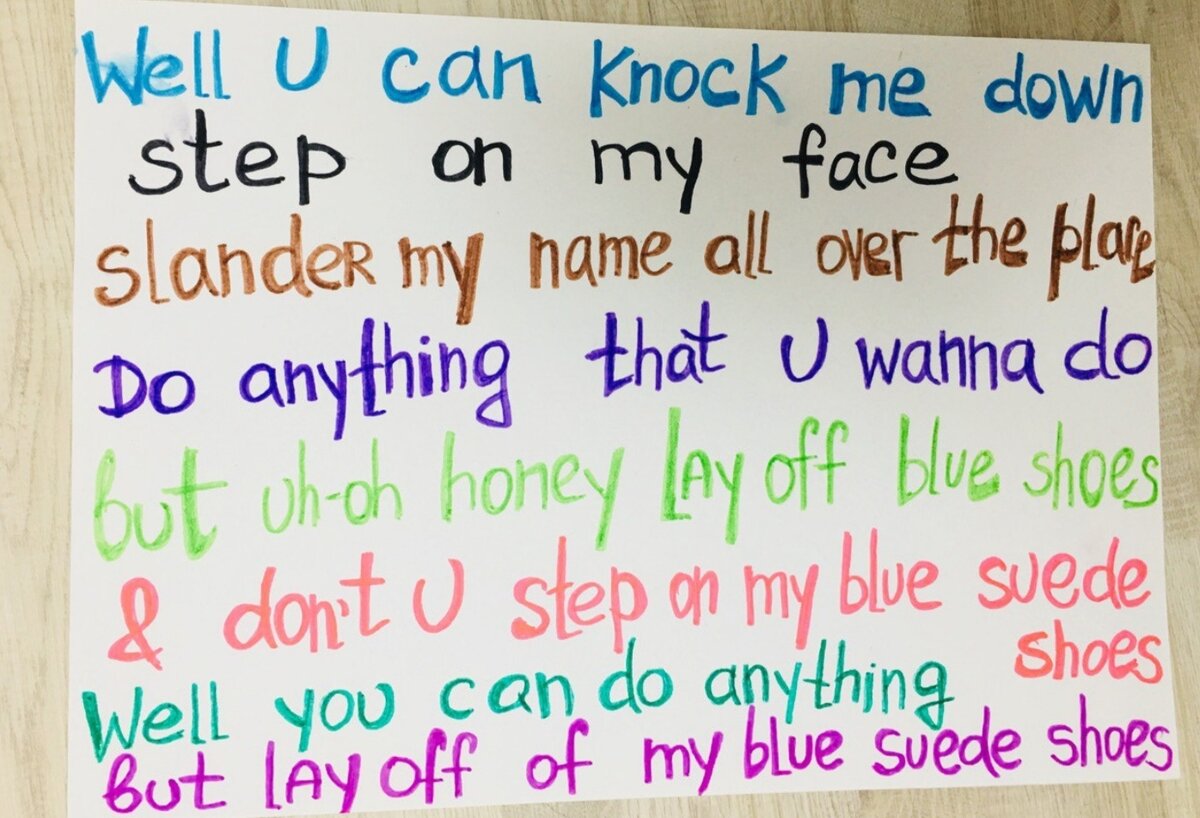 Well U can knock me down
step on my face
slander my name all over the place
Do anything that U wanna do
but uh-oh honey lay off blue shoes
& don't U step on my blue suede
shoes
Well you can do anything
but lay off of my blue suede shoes